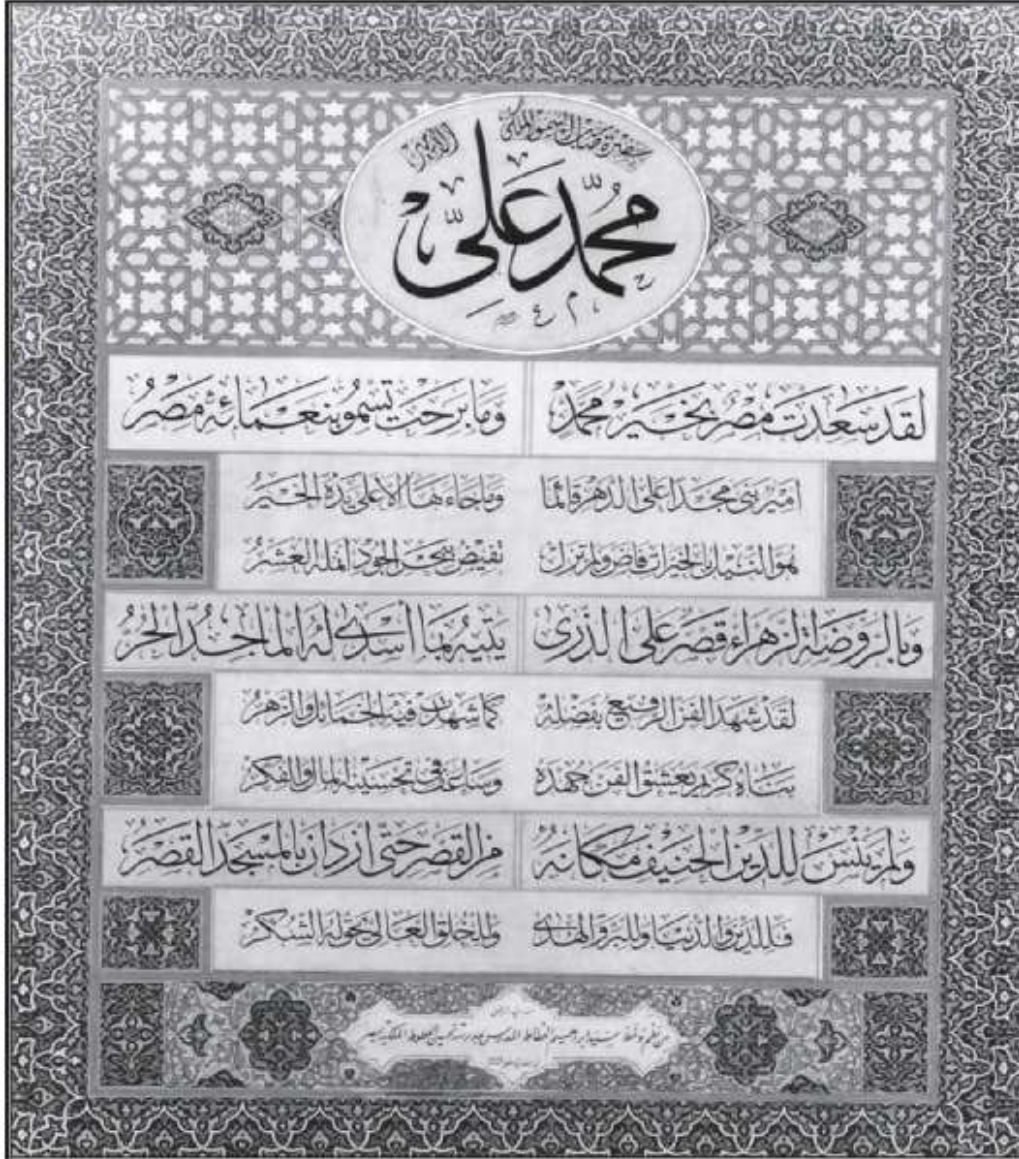 حضرة صاحب السمو الملكي الأمير
محمد علي
لقد سعدت مصر بخير محمد وما برحت تسمو بنعمائه مصر
أمير بنى مجدا على الدهر قائما وما جاءها إلا على يده الخير
هو النيل بالخيرات فاض ولم تزل تفيض ببحر الجود أنمله العشر
وبالروضة الزهراء قصر على الذرى يتيه بما أسدى له الماجد الحر
لقد شهد الفن الرفيع بفضله كما شهدت فيه الخمائل والزهر
بناه كريم يعشق الفن جهده وساعد في تحسينه المال والفكر
ولم ينس للدين الحنيف مكانه من القصر حتى ازدان بالمسجد القصر
فللدين والدنيا وللبر والهدى وللخلق العالي يحق له الشكر
من نظم وخط سيد ابراهيم الخطاط المدرس بمدرسة تحسين الخطوط الملكية بمصر